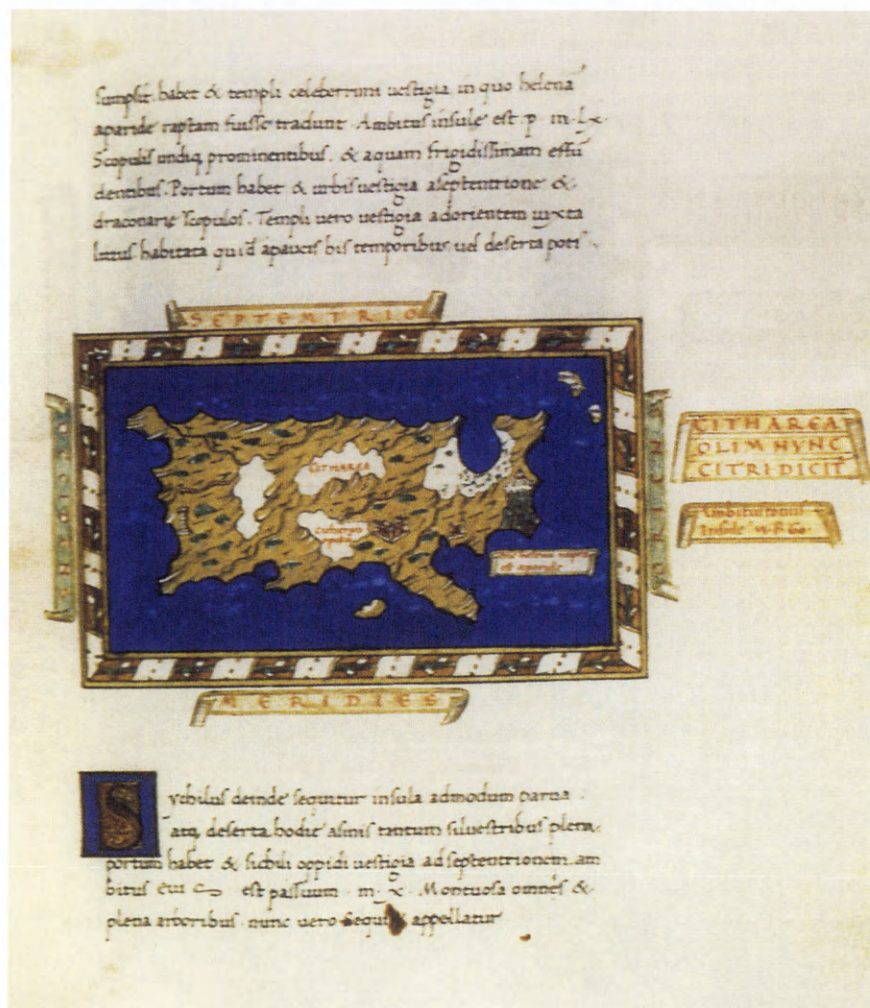 sumpsit. habet & templi celeberrimi uestigia in quo helena
aparide raptam fuisse tradunt. Ambitus insule est. p. m. lx.
Scopulis undiq prominentibus. & aquam frigidissimam effu
dentibus. Portum habet & urbis uestigia aseptentrione &
draconarie scopulos. Templi uero uestigia adorientem iuxta
littus. habitata quid apaucis his temporibus uel deserta poti
SEPTEMTRIO
CITHAREA
OLIM NVNC
CITRI DICIT
Ambitus totius
Insule M.P. 60.
CITHAREA
helena rapta
MERIDIES
Sychilus deinde sequitur insula admodum parua
atq deserta hodie asinis tantum siluestribus plena.
portum habet & sichili oppidi uestigia adseptentrionem. am
bitus est passuum. m. x. Montuosa omnes &
plena arboribus. nunc uero appellatur